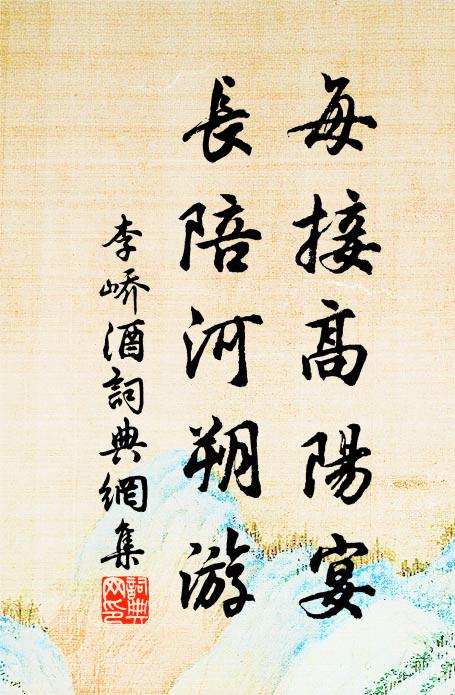 每接高陽宴
長陪河朔游
李嶠酒詞典網集
詞典